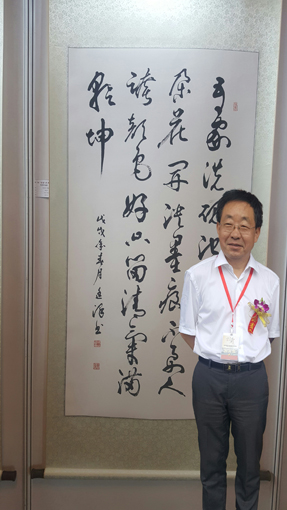 吾家洗砚池
朵花开淡墨痕不要人
誇颜色好只留清氣满
乾坤
戊戌年春月